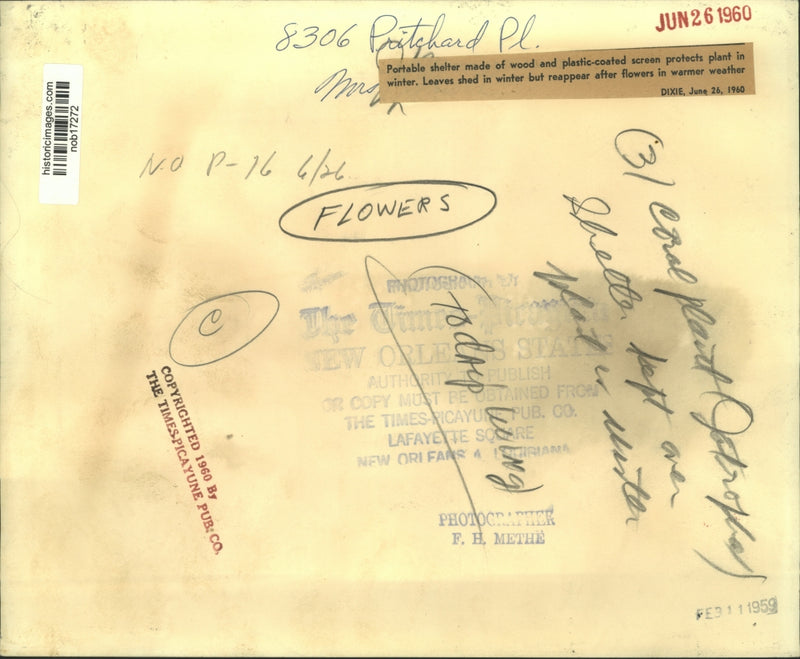 8306 Pritchard Pl.
JUN 26 1960
Portable shelter made of wood and plastic-coated screen protects plant in
winter. Leaves shed in winter but reappear after flowers in warmer weather
DIXIE, June 26, 1960
Mrs
historicimages.com
nob17272
N.O P-16 6/26
FLOWERS
(3) Coral plant (Jatropha)
Shelter kept over
plant in winter
C
PHOTOGRAPH BY
The Times-Picayune
NEW ORLEANS STATES
AUTHORITY TO PUBLISH
OR COPY MUST BE OBTAINED FROM
THE TIMES-PICAYUNE PUB. CO.
LAFAYETTE SQUARE
NEW ORLEANS 4, LOUISIANA
COPYRIGHTED 1960 By
THE TIMES-PICAYUNE PUB. CO.
PHOTOGRAPHER
F. H. METHE
FEB 11 1959